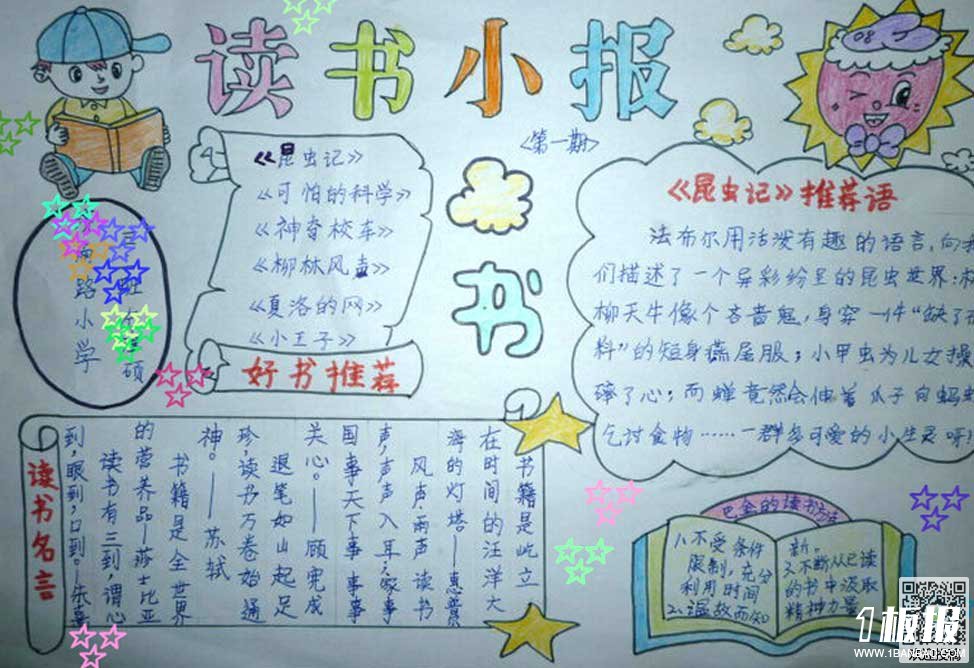 读书小报
<第一期>
《昆虫记》
《可怕的科学》
《神奇校车》
《柳林风声》
《夏洛的网》
《小王子》
好书推荐
书
路小学
硕
《昆虫记》推荐语
法布尔用活泼有趣的语言,向我
们描述了一个异彩纷呈的昆虫世界:
柳天牛像个吝啬鬼,身穿一件“缺了布
料”的短身燕尾服;小甲虫为儿女操
碎了心;而蝉竟然会伸着爪子向蚂蚁
乞讨食物……一群多可爱的小生灵呀
读书名言
书籍是屹立
在时间的汪洋大
海的灯塔——惠普
风声雨声读书
声,声声入耳;家事
国事天下事事事
关心。——顾宪成
退笔如山起足
珍,读书万卷始通
神。——苏轼
书籍是全世界
的营养品—莎士比亚
读书有三到,谓心
到,眼到,口到。—朱熹
巴金的读书方法
1.不受条件
限制,充分
利用时间
2.温故而知
新。
3.不断从已读
的书中汲取
精神力量
1板报
WWW.1BANBAO.COM